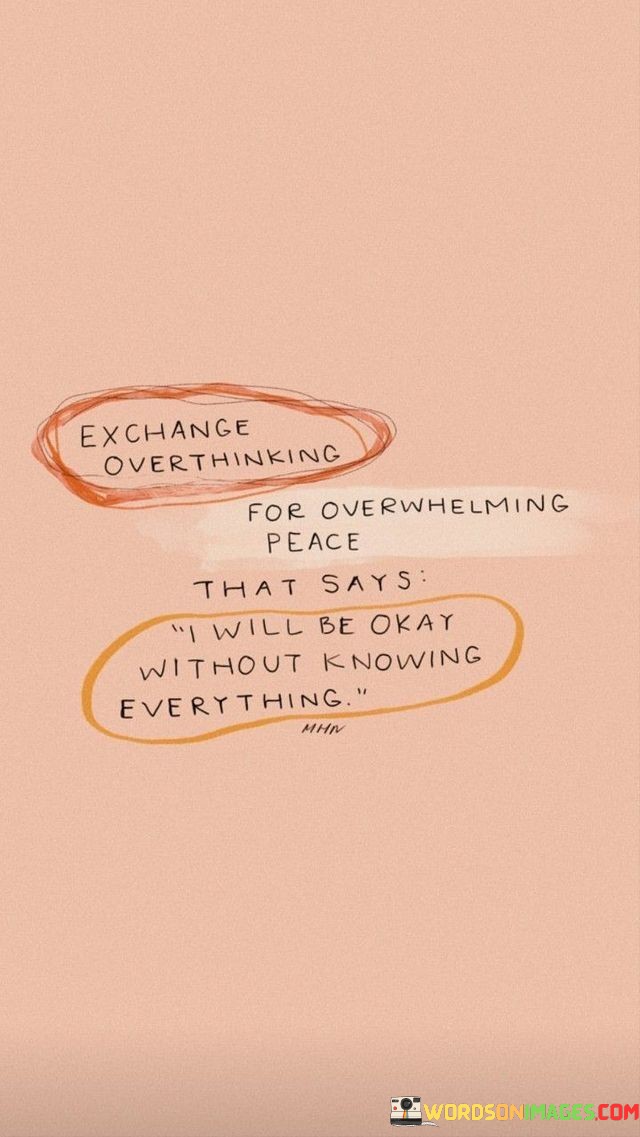 EXCHANGE
OVERTHINKING
FOR OVERWHELMING
PEACE
THAT SAYS:
"I WILL BE OKAY
WITHOUT KNOWING
EVERYTHING."
MHN
WORDSONIMAGES.COM